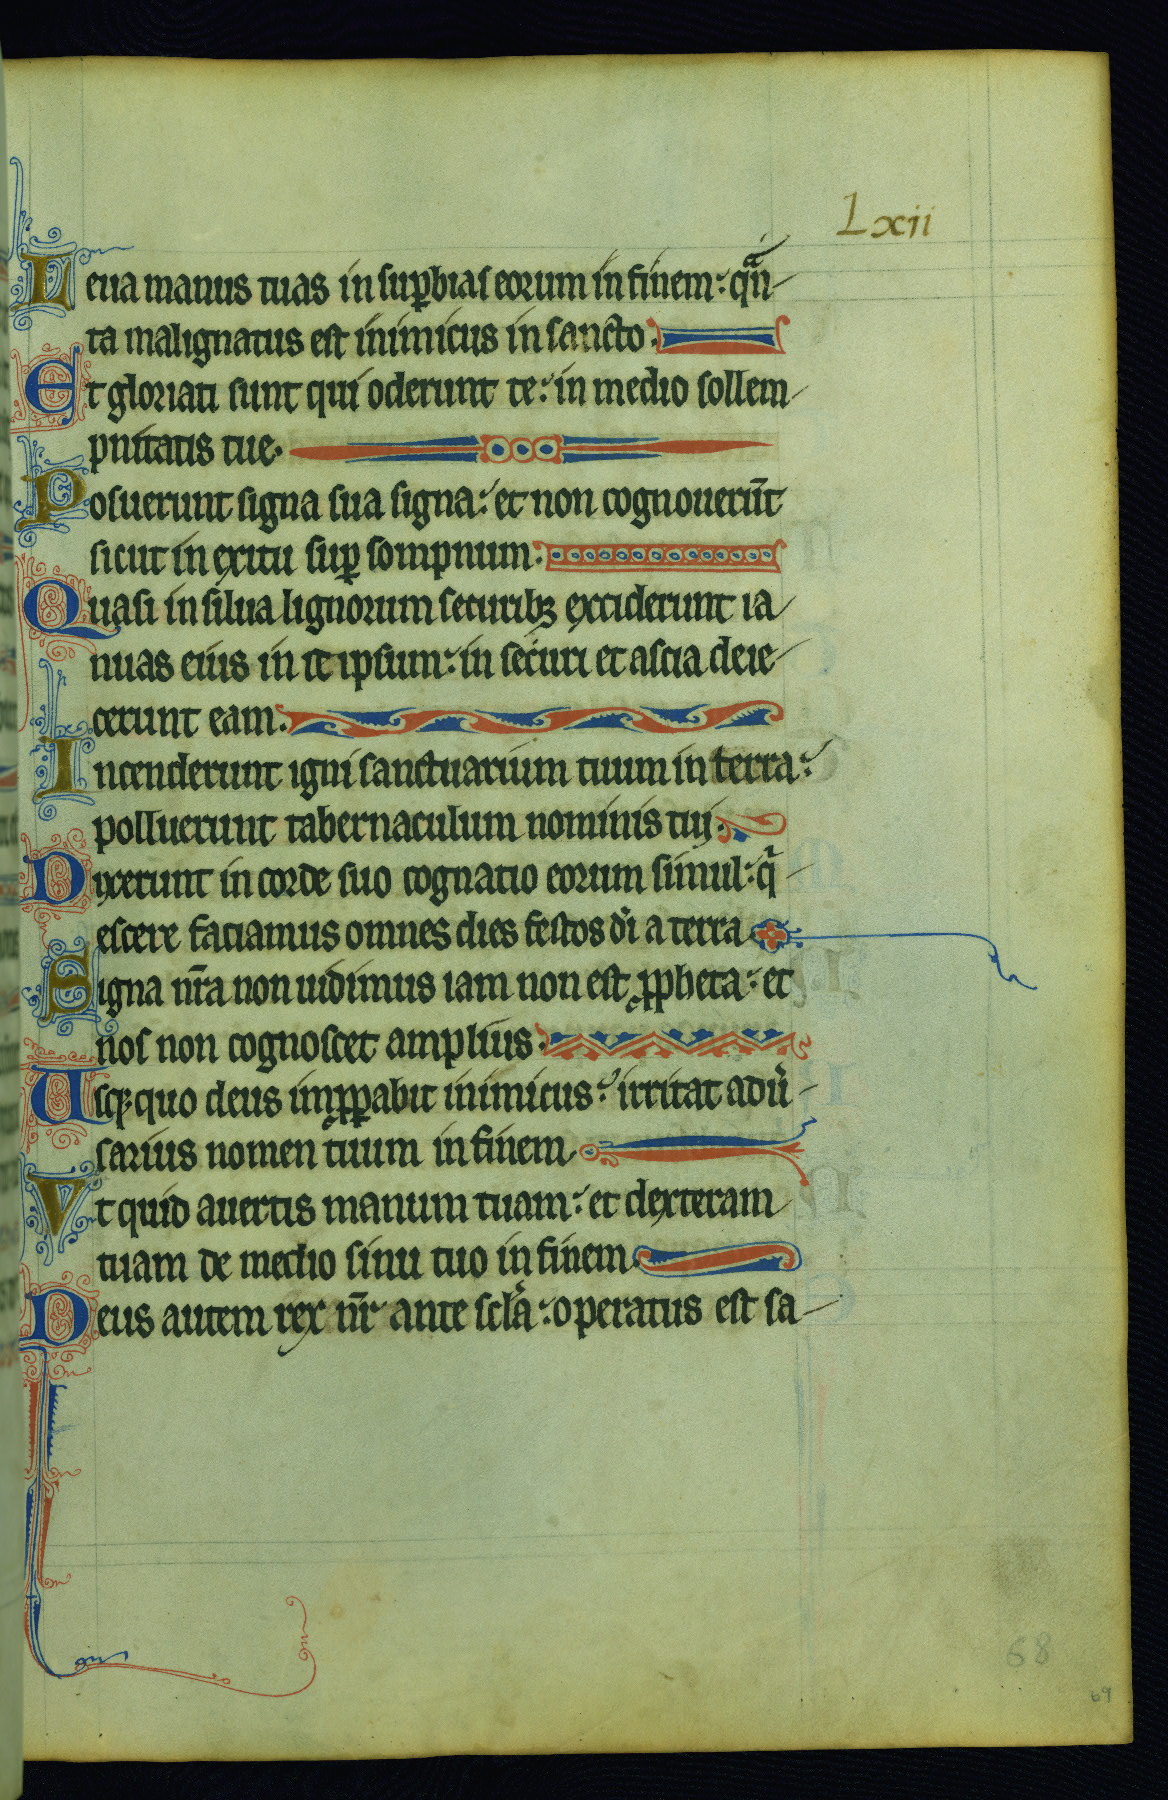 Lxii
Leua manus tuas in suꝑbias eorum in finem: qua̅
ta malignatus est inimicus in sancto.
Et gloriati sunt qui oderunt te: in medio sollem
pnitatis tue.
Posuerunt signa sua signa: et non cognouerūt
sicut in exitu suꝑ sompnum.
Quasi in silua lignorum securibꝫ exciderunt ia
nuas eius in it ipsum: in securi et ascia deie
cerunt eam.
Incenderunt igni sanctuarium tuum in terra:
polluerunt tabernaculum nominis tui.
Dixerunt in corde suo cognatio eorum simul: qͥ
escere faciamus omnes dies festos di̅ a terra
Signa nr̅a non uidimus iam non est ꝓpheta: et
nos non cognoscet amplius.
Usqꝫ quo deus imꝓꝑabit inimicus: irritat adu̅
sarius nomen tuum in finem
Vt quid auertis manum tuam: et dexteram
tuam de medio sinu tuo in finem.
Deus autem rex nr̅ ante scl̅a: operatus est sa
68
69